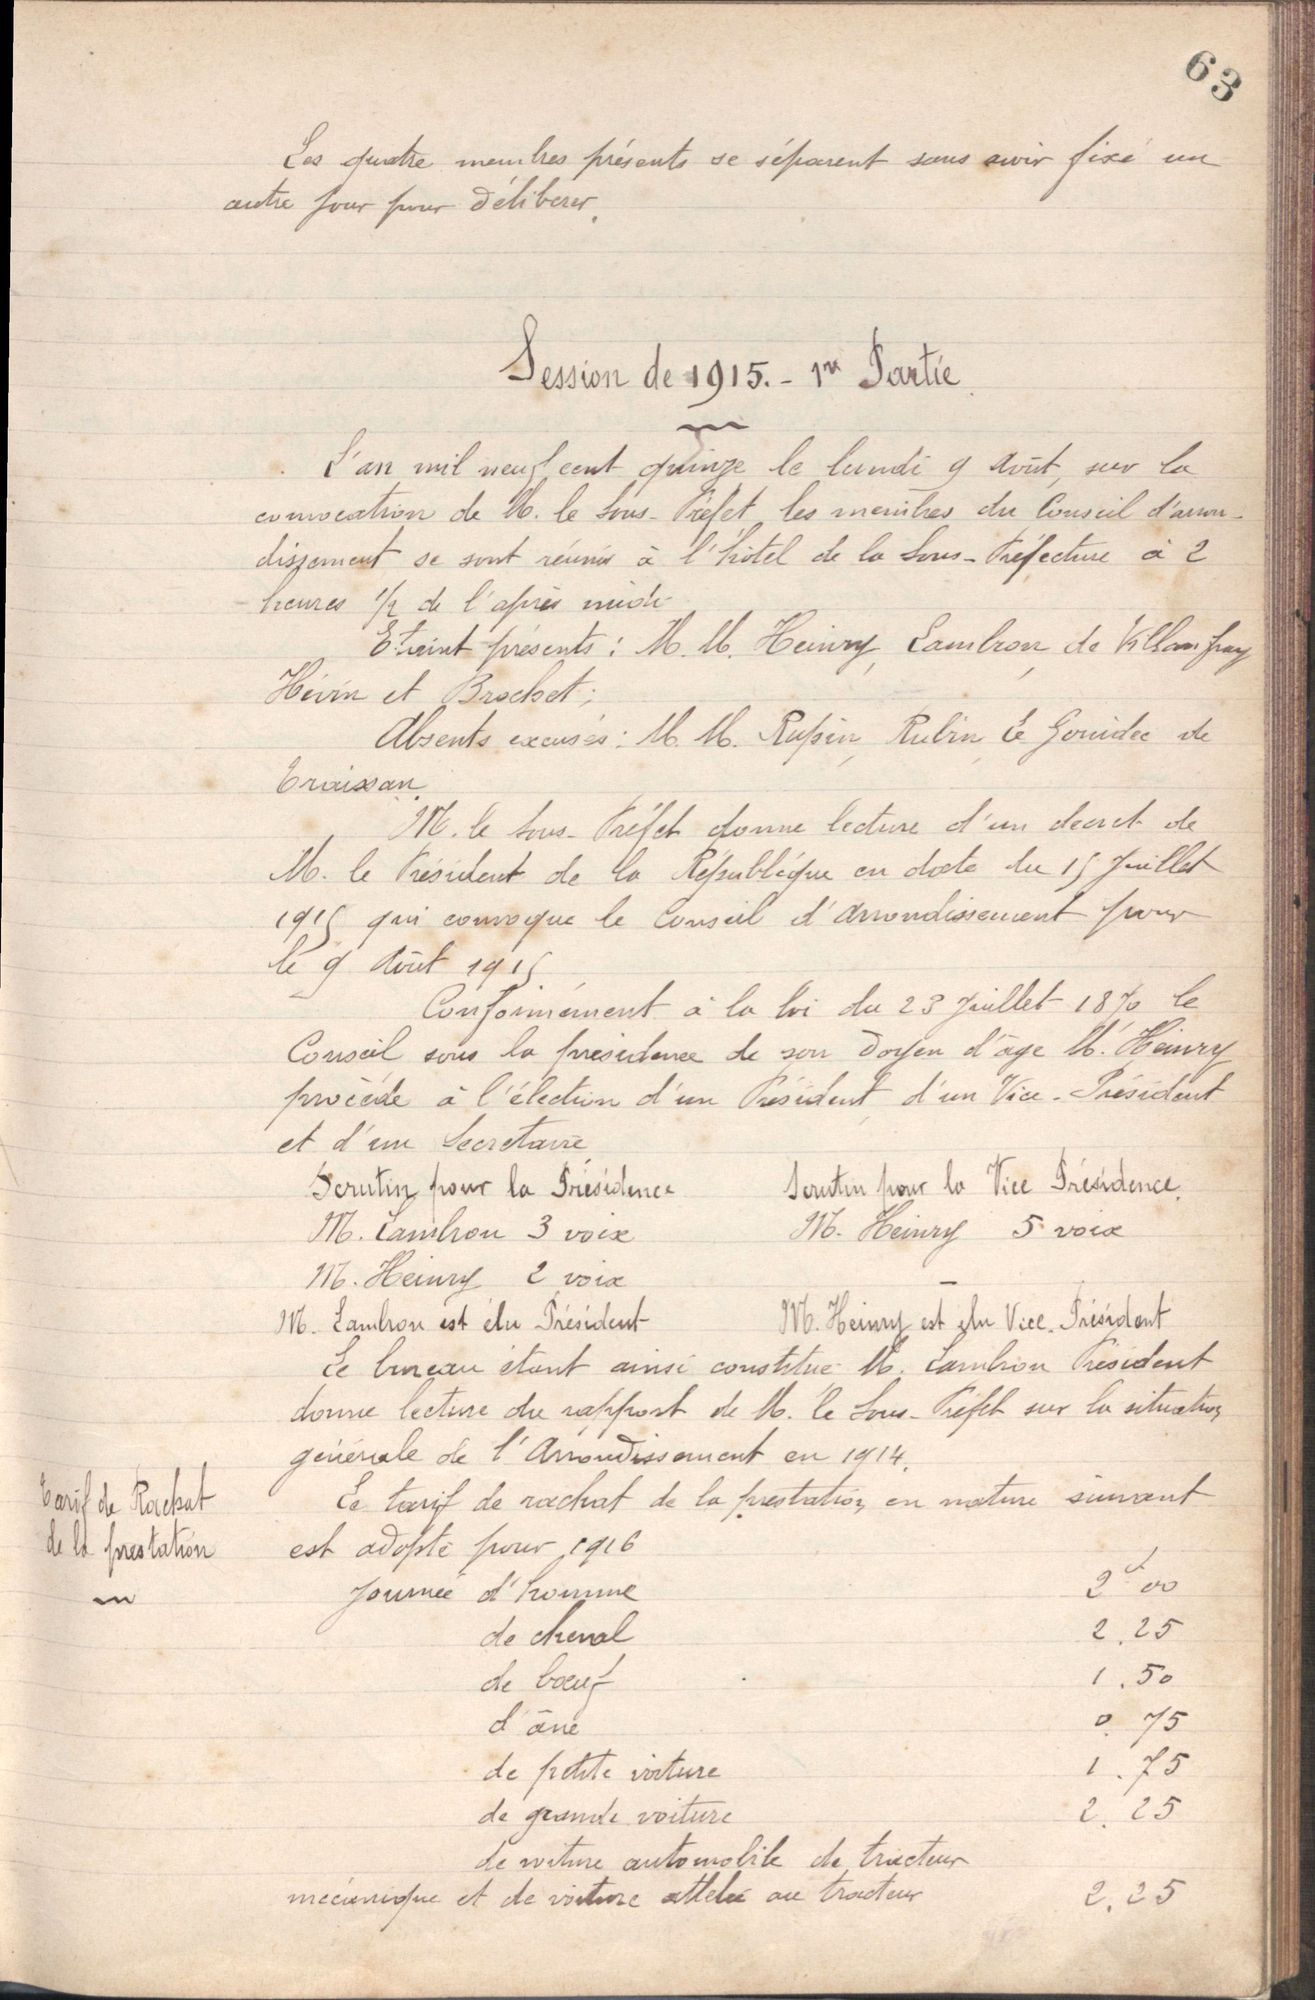 63
Les quatre membres présents se séparent sans avoir fixé un
autre jour pour délibérer.
Session de 1915. - 1re Partie.
L'an mil neuf cent quinze le lundi 9 Août, sur la
convocation de M. le Sous-Préfet les membres du Conseil d'arron-
dissement se sont réunis à l'hôtel de la Sous-Préfecture à 2
heures 1/2 de l'après midi
Etaient présents : M.M. Heinry, Lambron, de Villanfray
Hévin et Brochet ;
Absents excusés : M.M. Rupin, Rubin, Le Gonidec de
Traissan.
M. le Sous-Préfet donne lecture d'un decret de
M. le Président de la République en date du 15 Juillet
1915 qui convoque le Conseil d'Arrondissement pour
le 9 Août 1915
Conformément à la loi du 23 Juillet 1870 le
Conseil sous la présidence de son Doyen d'âge M. Heinry
procède à l'élection d'un Président, d'un Vice-Président
et d'un Secretaire
Scrutin pour la Présidence Scrutin pour la Vice Présidence.
M. Lambron 3 voix M. Heinry 5 voix
M. Heinry 2 voix
M. Lambron est élu Président M. Heinry est élu Vice-Président
Le bureau étant ainsi constitué M. Lambron Président
donne lecture du rapport de M. le Sous-Préfet sur la situation
générale de l'Arrondissement en 1914.
Tarif de Rachat
de la prestation
Le tarif de rachat de la prestation en nature suivant
est adopté pour 1916
Journée d'homme 2f 00
de cheval 2.25
de bœuf 1.50
d'âne 0.75
de petite voiture 1.75
de grande voiture 2.25
de voiture automobile de tracteur
mécanique et de voiture attelée au tracteur 2.25